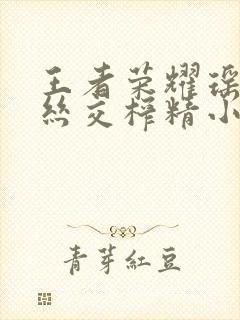 王者荣耀瑶
丝交榨精小
青芽紅豆